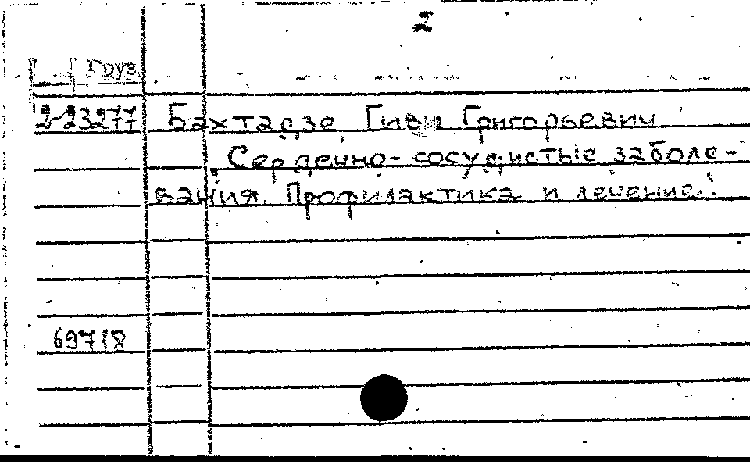 2
Груз.
2-23277 Бахтадзе Гиви Григорьевич
Сердечно-сосудистые заболе-
вания. Профилактика и лечение.
69718